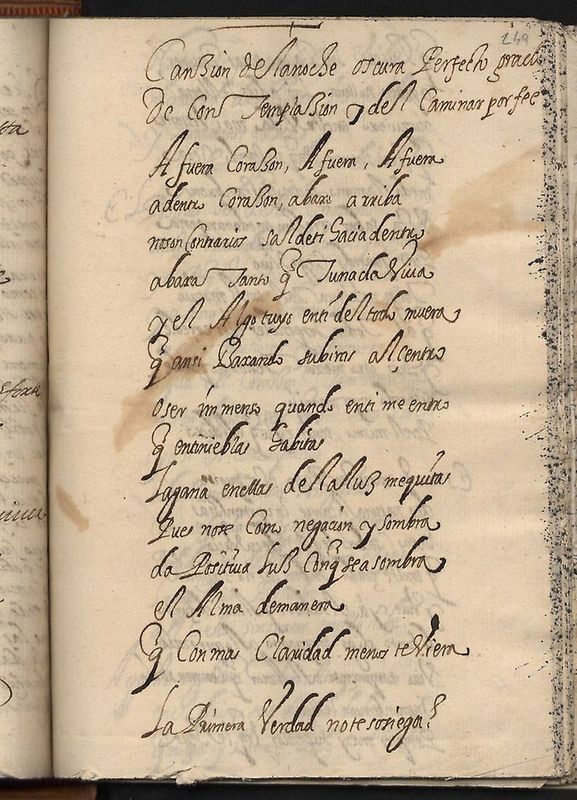 249
Canzion de la noche oscura Perfecto grado
De Contemplazion y del Caminar por fee
Afuera Corazon, Afuera, Afuera
adentro Corazon, abaxo arriba
no son Contrarios sal de ti hacia dentro
abaxa tanto q̃ Tu nada Viva
y el Algo tuyo en ti del todo muera
q̃ ansi Baxando subiras al centro
o ser inmenso quando en ti me entro
q̃ en tinieblas habitas
La gana en ellas de la luz me quitas
Pues no se Como negacion y sombra
da Positiva luz Conq̃ se asombra
el Alma de manera
q̃ Con mas Claridad menos te Viera
La Primera Verdad no te sosiega?